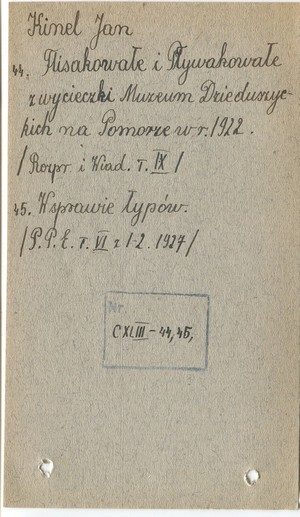 Kinel Jan
44. Flisakowate i Pływakowate
z wycieczki Muzeum Dzieduszyc-
kich na Pomorze w r. 1922.
/Rozpr. i Wiad. T. IX/
45. W sprawie typów.
/P.P.E. T. VI z 1-2. 1927/
Nr.
CXLIII - 44, 45,